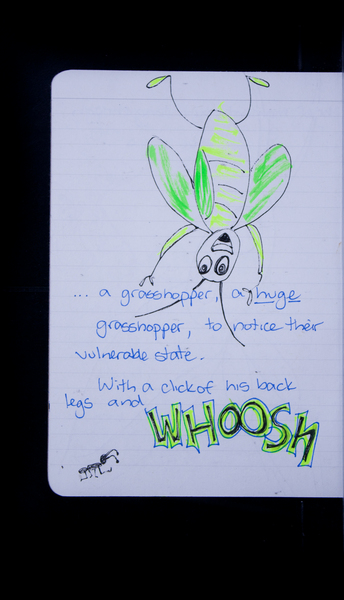 ... a grasshopper, a huge
grasshopper, to notice their
vulnerable state.
With a click of his back
legs and WHOOSH